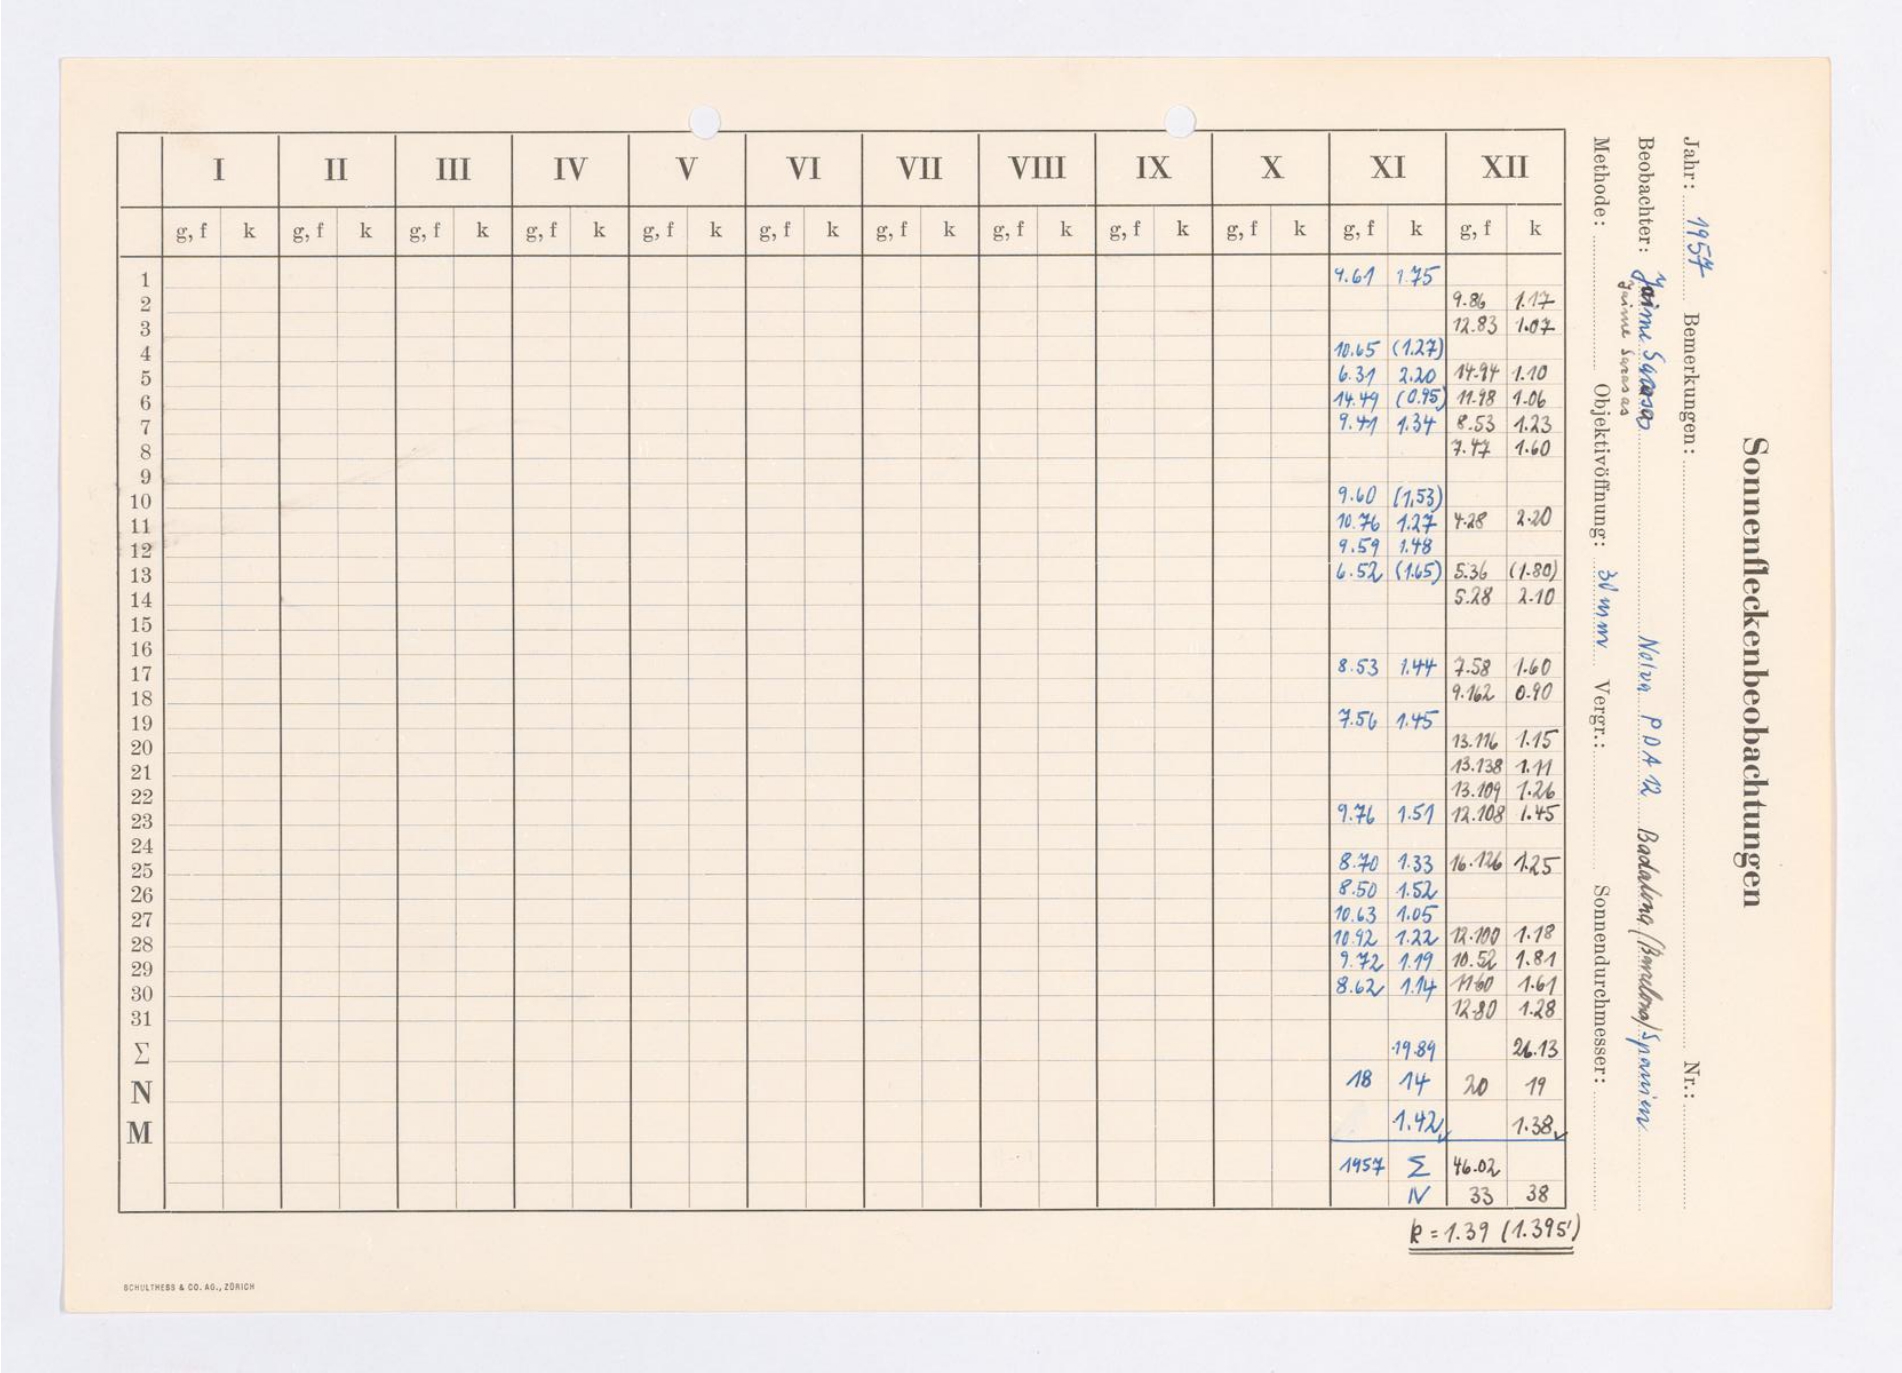 Sonnenfleckenbeobachtungen
Jahr: 1957 Bemerkungen: Nr.:
Beobachter: Jaime Sarasas Notva PDA 12 Badalona/(Barcelona)/Spanien
Jaime Sarasas
Methode: Objektivöffnung: 30 mm Vergr.: Sonnendurchmesser:
I II III IV V VI VII VIII IX X XI XII
g, f k g, f k g, f k g, f k g, f k g, f k g, f k g, f k g, f k g, f k g, f k g, f k
1 4.61 1.75
2 9.86 1.17
3 12.83 1.07
4 10.65 (1.27)
5 6.31 2.20 14.94 1.10
6 14.49 (0.95) 11.98 1.06
7 9.41 1.34 8.53 1.23
8 7.47 1.60
9
10 9.60 (1.53)
11 10.76 1.27 4.28 2.20
12 9.59 1.48
13 6.52 (1.65) 5.36 (1.80)
14 5.28 2.10
15
16
17 8.53 1.44 7.58 1.60
18 9.162 0.90
19 7.56 1.45
20 13.116 1.15
21 13.138 1.11
22 13.109 1.26
23 9.76 1.51 12.108 1.45
24
25 8.70 1.33 16.126 1.25
26 8.50 1.52
27 10.63 1.05
28 10.92 1.22 12.100 1.18
29 9.72 1.19 10.52 1.81
30 8.62 1.14 11.60 1.61
31 12.80 1.28
Σ 19.89 26.13
N 18 14 20 19
M 1.42 1.38
1957 Σ 46.02
N 33 38
k = 1.39 (1.395)
SCHULTHESS & CO. AG., ZÜRICH